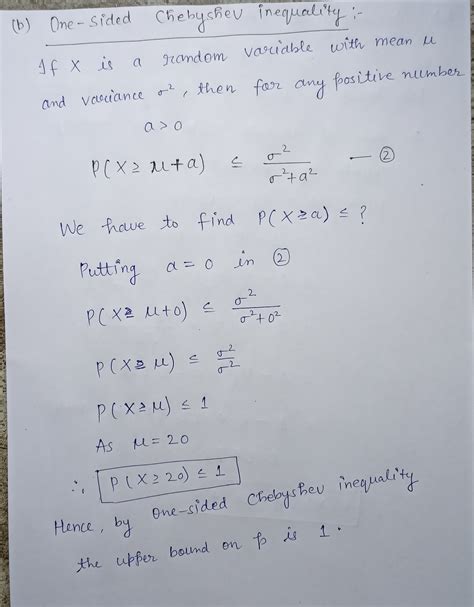 (b) One-sided Chebyshev inequality :-
If X is a random variable with mean μ
and variance σ², then for any positive number
a > 0
P(X ≥ μ+a) ≤ σ²/(σ²+a²) — ②
We have to find P(X ≥ a) ≤ ?
Putting a = 0 in ②
P(X ≥ μ+0) ≤ σ²/(σ²+0²)
P(X ≥ μ) ≤ σ²/σ²
P(X ≥ μ) ≤ 1
As μ = 20
∴ P(X ≥ 20) ≤ 1
Hence, by One-sided Chebyshev inequality
the upper bound on p is 1.